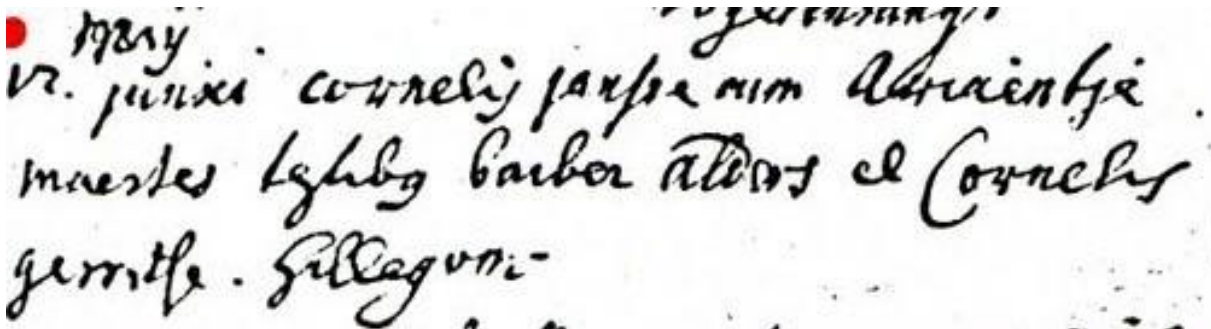 Maij
12. junxi cornelis janse cum Adriaentje
maertes testibus barber alders et Cornelis
gerritse. Hillegom